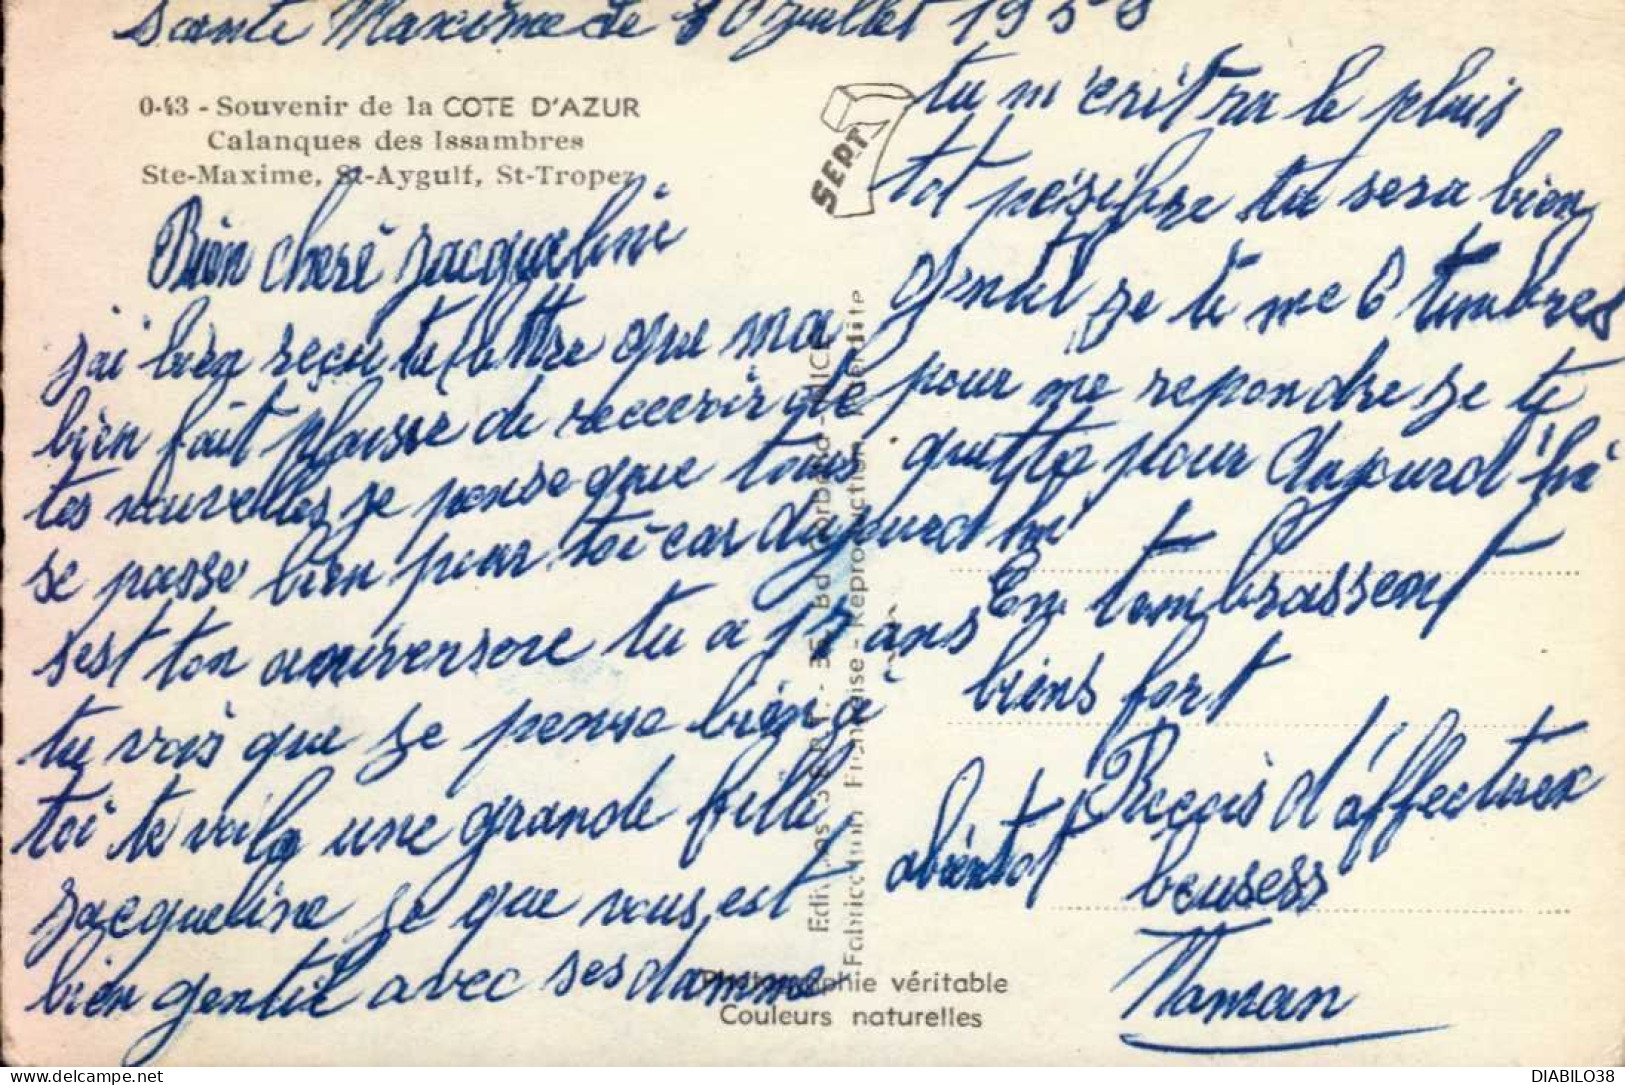 Sante Maxime le 10 juillet 195
0-43 - Souvenir de la COTE D'AZUR
Calanques des Issambres
Ste-Maxime, St-Aygulf, St-Tropez
SEPT 7
Bien cheré Jacqueline
j'ai bien reçu ta lettre que ma
bien fait plaisir de reccevoir de
tes nouvelles je pense que tous
se passe bien pour toi car dujourd hui
sest ton aniversere tu a 17 ans
tu vois que je pense bien a
toi te voila une grande fille
Jacqueline je que vous est
bien gentil avec ses damme
tu m'écritra le pluis
tot pésibre tu sera bien
gentil je ti me 6 timbres
pour me repondre je te
quitte pour dujourd'hui
En t'embrassent
biens fort
abientot
Reçois d'affectuex
beusess
Maman
Editions S.E.P.T. - 35 Bd Gorbella - NICE
Fabrication Française - Reproduction Interdite
Photographie véritable
Couleurs naturelles
DIABILO38